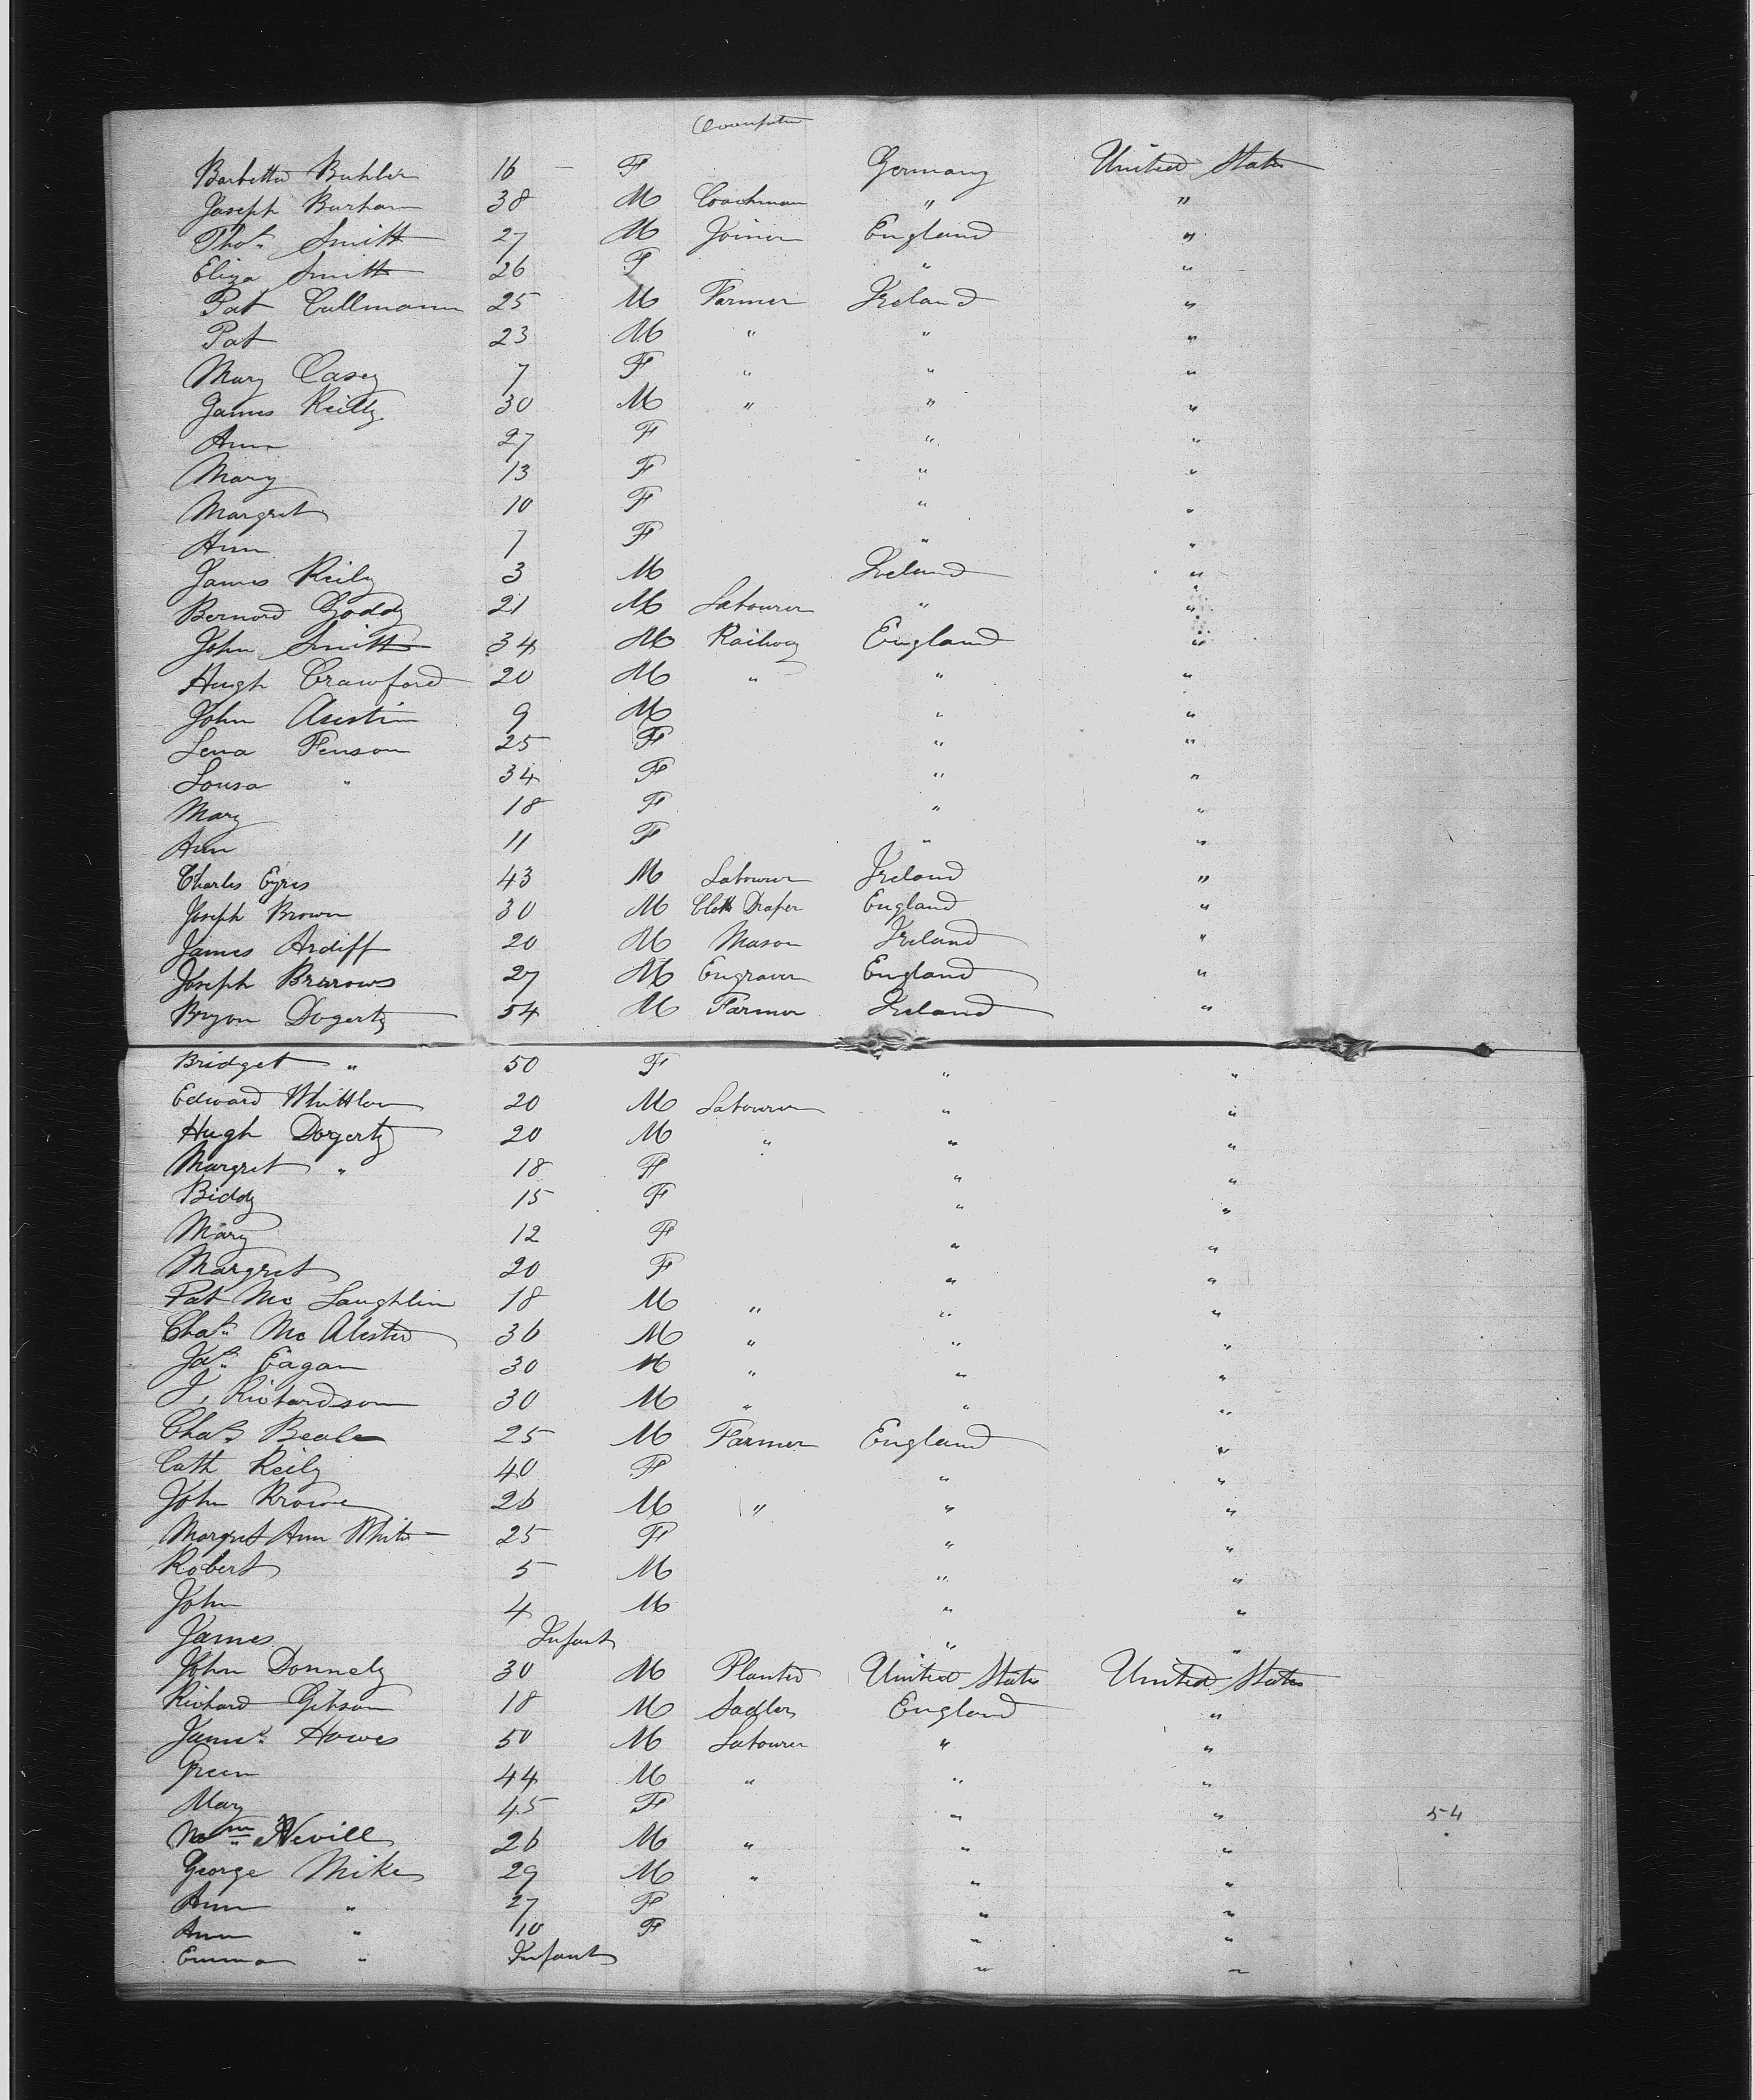 Occupation
Barbetta Buhler 16 – F Germany United States
Joseph Burham 38 M Coachman " "
Thos. Smith 27 M Joiner England "
Eliza Smith 26 F " "
Pat Cullmann 25 M Farmer Ireland "
Pat 23 M " " "
Mary Casey 7 F " " "
James Reilly 30 M " " "
Ann 27 F " "
Mary 13 F " "
Margret 10 F " "
Ann 7 F " "
James Reily 3 M Ireland "
Bernard Goddy 21 M Labourer " "
John Smith 34 M Railway England "
Hugh Crawford 20 M " " "
John Austin 9 M " "
Lena Fenson 25 F " "
Lousa " 34 F " "
Mary 18 F " "
Ann 11 F " "
Charles Eyres 43 M Labourer Ireland "
Joseph Brown 30 M Cloth Draper England "
James Ardiff 20 M Mason Ireland "
Joseph Brarows 27 M Engraver England "
Bryon Dogerty 54 M Farmer Ireland "
Bridget " 50 F " "
Edward Whittlow 20 M Labourer " "
Hugh Dogerty 20 M " " "
Margret " 18 F " "
Biddy 15 F " "
Mary 12 F " "
Margret 20 F " "
Pat Mc Laughlin 18 M " " "
Chas. Mc Alester 36 M " " "
Jas. Eagan 30 M " " "
J, Richardson 30 M " " "
Chas. Beale 25 M Farmer England "
Cath Reily 40 F " "
John Krowe 26 M " " "
Margret Ann White 25 F " "
Robert 5 M " "
John 4 M " "
James Infant " "
John Donnely 30 M Planter United States United States
Richard Gibson 18 M Sadler England "
James. Howes 50 M Labourer " "
Green 44 M " " "
Mary 45 F " " 54
Wm. Nevill 26 M " " "
George Mike 29 M " " "
Ann " 27 F " "
Ann " 10 F " "
Emma " Infant " "